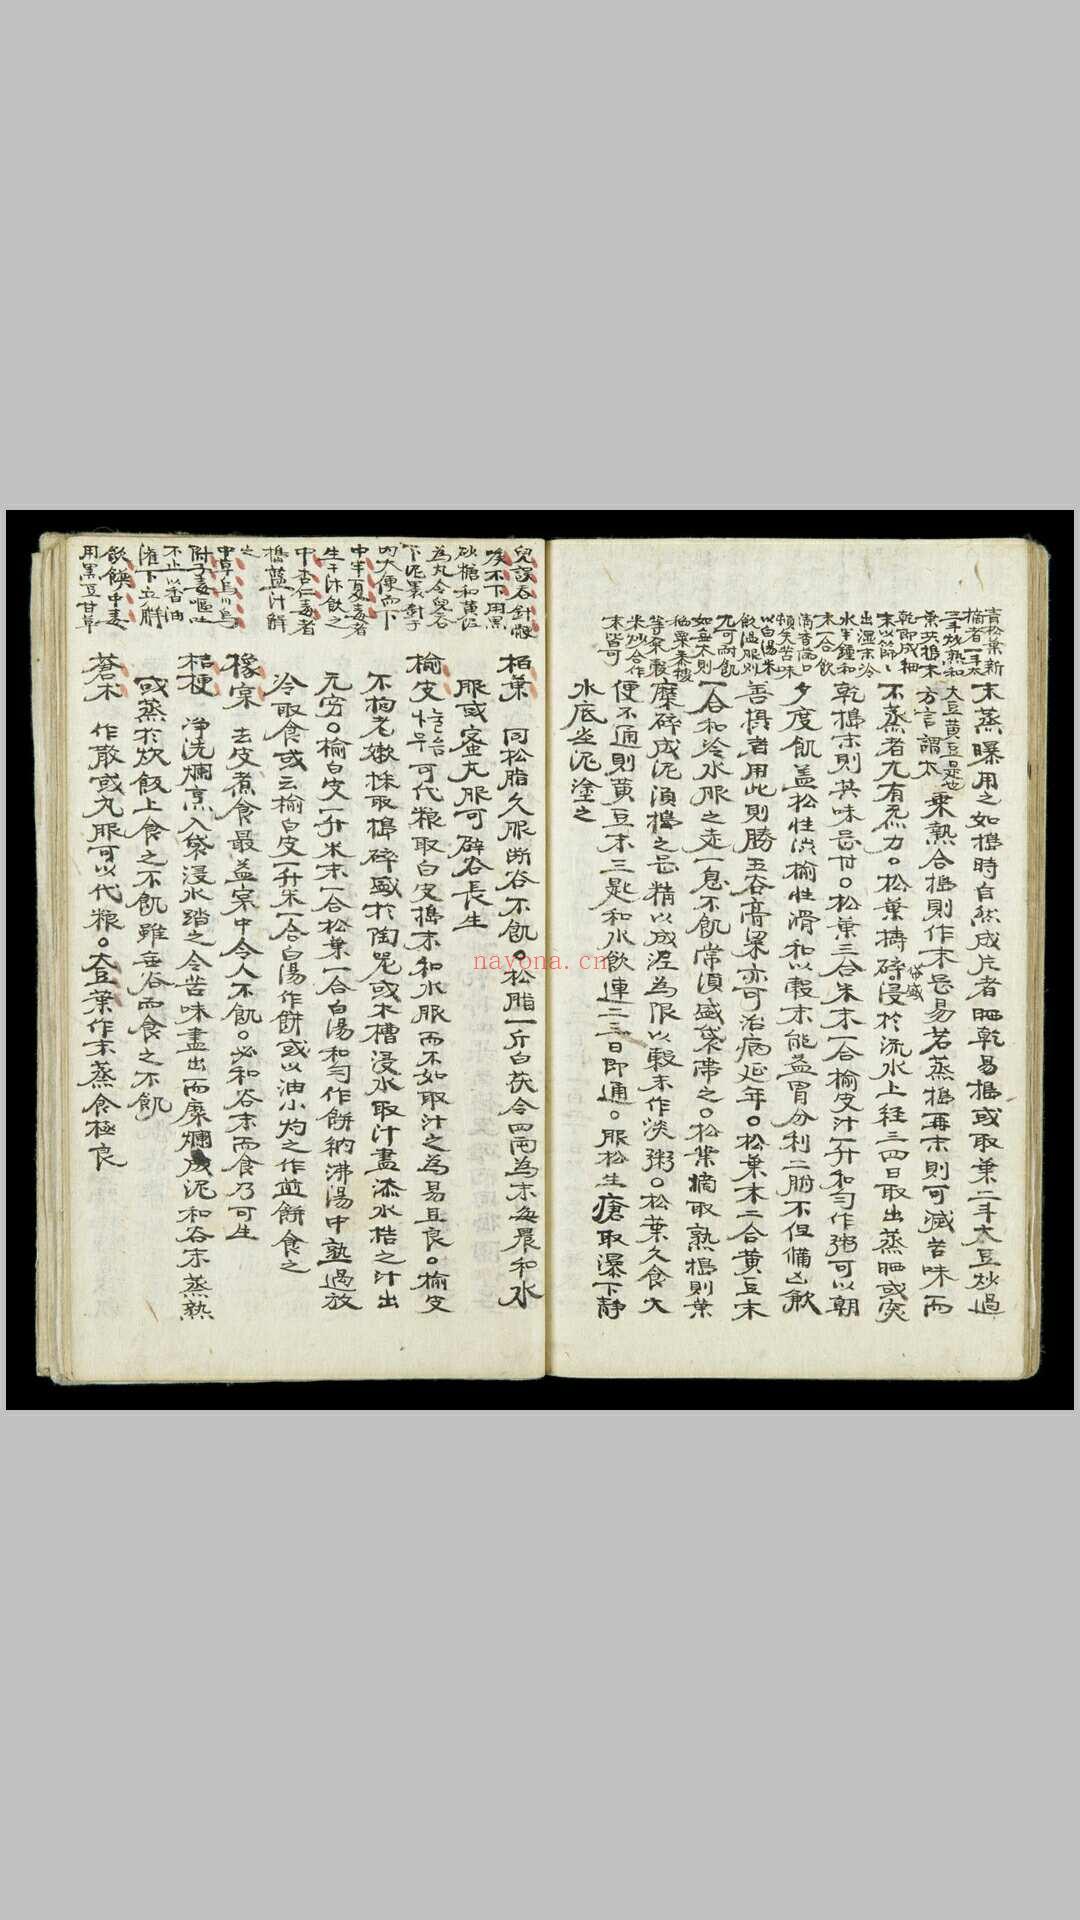 青松葉新
摘者一斗太
三斗炒熟和
葉共搗末
乾即成細
末以篩
出湿末冷
水半鍾和
末一合飲
滿香滿口
頓失苦味
以白湯朱
飲過服則
尤可耐飢
如無太則
稻粟黍稷
等各穀
米炒合作
末皆可
末蒸曝用之如搗時自然成片者晒乾易搗或取葉二斗大豆炒過
大豆黄豆是也
方言謂太
乗熟合搗則作末甚易若蒸搗再末則可减苦味而
不蒸者尤有氣力○松葉擣碎袋盛浸於流水上经三四日取出蒸晒或突
乾搗末則其味甚甘○松葉三合朱末一合榆皮汁一升和勻作粥可以朝
夕度飢盖松性澁榆性滑和以穀末能益胃分利二腑不但備凶歉
善攝者用此則勝五谷膏粱亦可治病延年○松葉末二合黄豆末
一合和冷水服之走一息不飢常湏盛袋帶之○松葉摘取熟搗則葉
糜碎成泥湏搗之甚精以成涅為限以穀末作淡粥○松葉久食大
便不通則黄豆末三匙和水飲連二三日即通○服松生瘡取瀑下静
水底尘泥塗之
兒誤吞針骰
喉不下用黑
砂糖和黄泥
為丸令兒吞
下泥裹針子
肉大便而下
中半夏毒者
生干汁飲之
中杏仁毒者
搗藍汁解
之
中草烏川烏
附子毒嘔吐
不止以香油
潅下立觧
飲饌中毒
用黑豆甘草
栢葉 同松脂久服断谷不飢○松脂一斤白茯令四兩為末每晨和水
服或蜜丸服可辟谷長生
榆皮 느릅 可代粮取白皮搗末和水服而不如取汁之為易且良○榆皮
不拘老嫩採取搗碎盛於陶器或木槽浸水取汁盡添水捁之汁出
无穷○榆白皮一升米末一合松葉一合白湯和勻作餅納沸湯中熟過放
冷取食或云榆白皮一升米一合白湯作餅或以油小灼之作煎餅食之
橡宲 去皮煮食最益宲中令人不飢○必和谷末而食乃可生
桔梗 净洗爛烹入袋浸水踏之令苦味盡出而糜爛成泥和谷末蒸熟
或蒸於炊飯上食之不飢雖無谷而食之不飢
蒼术 作散或丸服可以代粮○大豆葉作末蒸食極良
nayona.cn